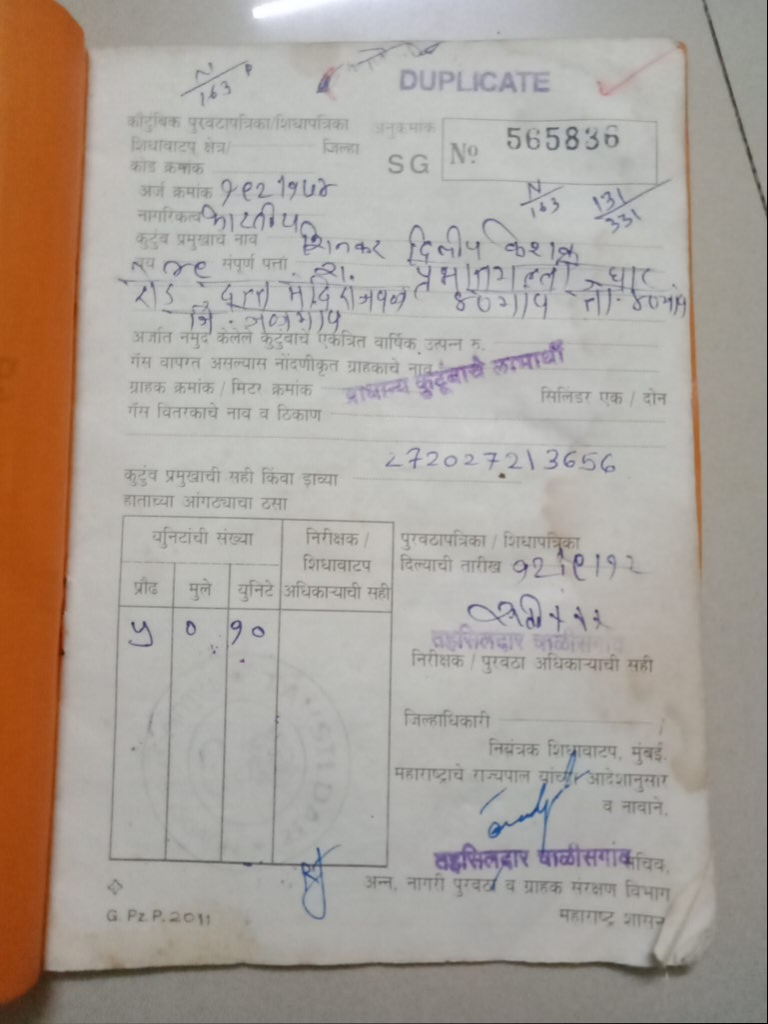 N
163
DUPLICATE
कौटुंबिक पुरवठापत्रिका/शिधापत्रिका
अनुक्रमांक
शिधावाटप क्षेत्र/ जिल्हा
SG
Nº 565836
कोड क्रमांक
अर्ज क्रमांक
N
163
131
331
नागरिकत्व भारतीय
कुटुंब प्रमुखाचे नाव शिनकर दिलीप केशव
वय ४९ संपूर्ण पत्ता रा. घाट
रोड, दत्त मंदिराजवळ ४०गांव ता. ४०गांव
जि. जळगांव
अर्जात नमुद केलेले कुटुंबाचे एकत्रित वार्षिक उत्पन्न रु.
गॅस वापरत असल्यास नोंदणीकृत ग्राहकाचे नाव
प्राधान्य कुटूंबाचे लाभार्थी
ग्राहक क्रमांक / मिटर क्रमांक सिलिंडर एक / दोन
गॅस वितरकाचे नाव व ठिकाण
272027213656
कुटुंब प्रमुखाची सही किंवा डाव्या
हाताच्या आंगठ्याचा ठसा
युनिटांची संख्या
निरीक्षक /
शिधावाटप
अधिकाऱ्याची सही
प्रौढ मुले युनिटे
५ ० १०
पुरवठापत्रिका / शिधापत्रिका
दिल्याची तारीख १२/९/१२
तहसिलदार चाळीसगांव
निरीक्षक / पुरवठा अधिकाऱ्याची सही
जिल्हाधिकारी
नियंत्रक शिधावाटप, मुंबई.
महाराष्ट्राचे राज्यपाल यांच्या आदेशानुसार
व नावाने,
तहसिलदार चाळीसगांव
सचिव,
अन्न, नागरी पुरवठा व ग्राहक संरक्षण विभाग
महाराष्ट्र शासन
G. Pz. P. 2011